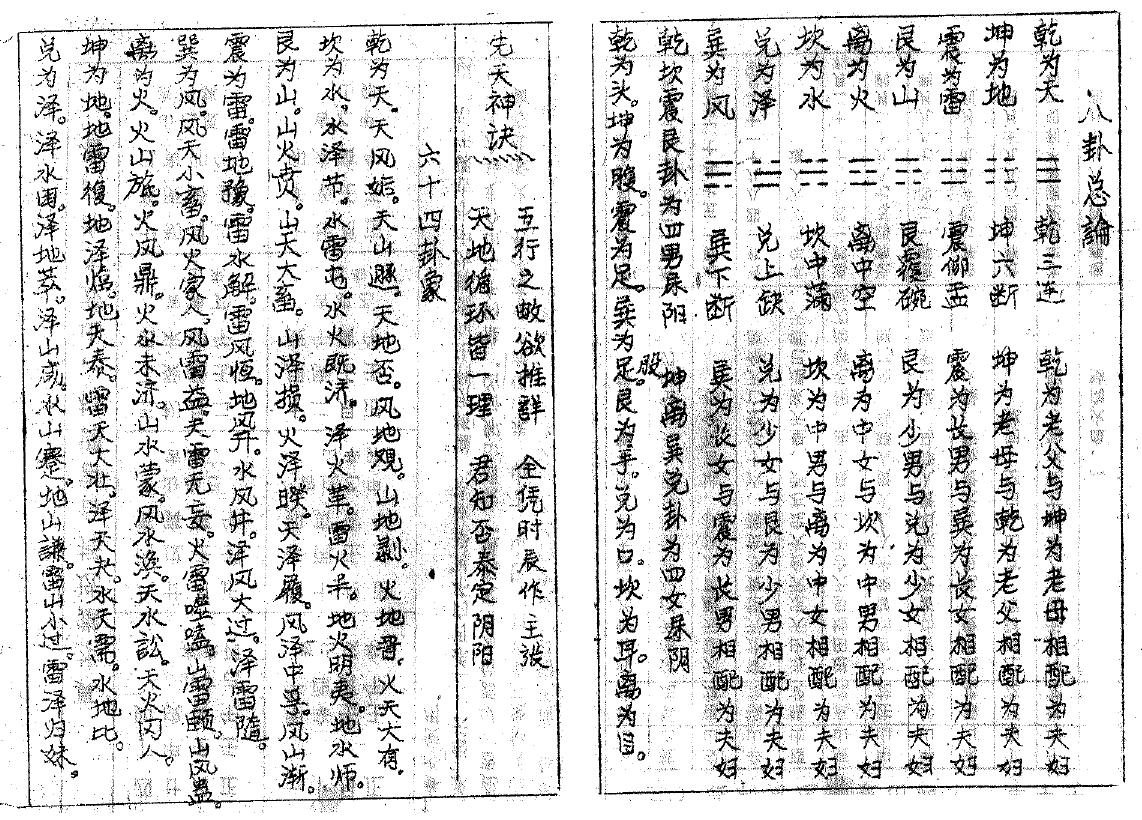 八卦总論
乾为天 ☰ 乾三连 乾为老父与坤为老母相配为夫妇
坤为地 ☷ 坤六断 坤为老母与乾为老父相配为夫妇
震为雷 ☳ 震仰盂 震为长男与巽为长女相配为夫妇
艮为山 ☶ 艮覆碗 艮为少男与兑为少女相配为夫妇
离为火 ☲ 离中空 离为中女与坎为中男相配为夫妇
坎为水 ☵ 坎中满 坎为中男与离为中女相配为夫妇
兑为泽 ☱ 兑上缺 兑为少女与艮为少男相配为夫妇
巽为风 ☴ 巽下断 巽为长女与震为长男相配为夫妇
乾坎震艮卦为四男属阳 坤离巽兑卦为四女属阴
乾为头。坤为腹。震为足。巽为足。股艮为手。兑为口。坎为耳。离为目。
先天神诀
五行之敵欲推詳 全凭时辰作主張
天地循环皆一理 君知否泰定阴阳
六十四卦象
乾为天。天风姤。天山遯。天地否。风地观。山地剥。火地晋。火天大有。
坎为水。水泽节。水雷屯。水火既济。泽火革。雷火丰。地火明夷。地水师。
艮为山。山火贲。山天大畜。山泽損。火泽睽。天泽履。风泽中孚。风山渐。
震为雷。雷地豫。雷水解。雷风恒。地风升。水风井。泽风大过。泽雷隨。
巽为风。风天小畜。风火家人。风雷益。天雷无妄。火雷噬嗑。山雷頤。山风蠱。
离为火。火山旅。火风鼎。火水未济。山水蒙。风水涣。天水訟。天火同人。
坤为地。地雷復。地泽临。地天泰。雷天大壮。泽天夬。水天需。水地比。
兑为泽。泽水困。泽地萃。泽山咸。水山蹇。地山謙。雷山小过。雷泽归妹。